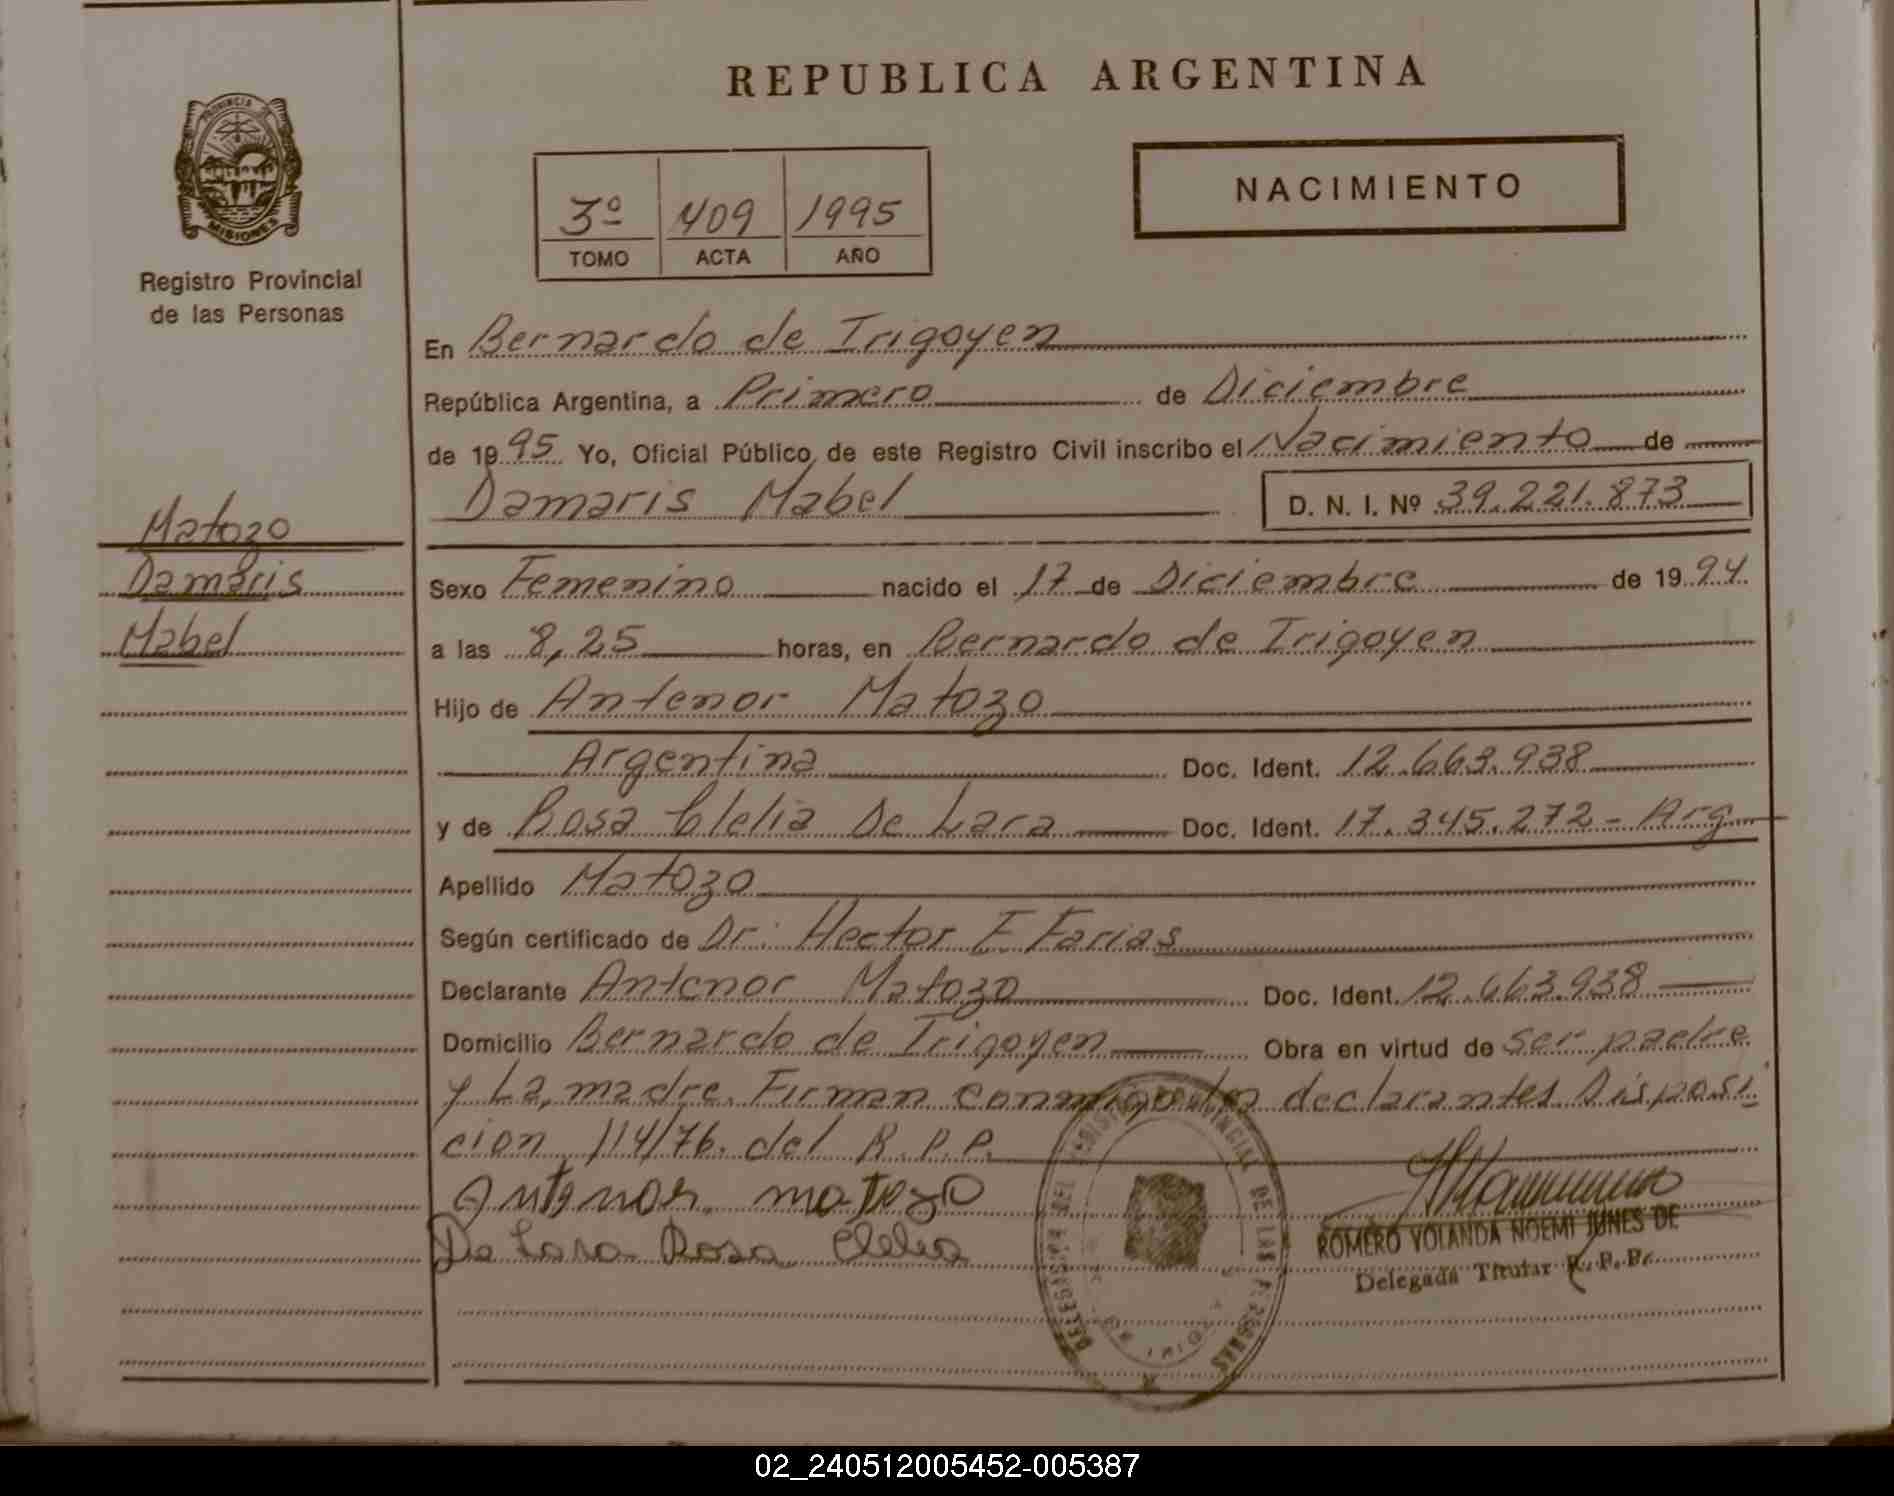 REPUBLICA ARGENTINA
PROVINCIA DE
MISIONES
Registro Provincial
de las Personas
NACIMIENTO
3º 409 1995
TOMO ACTA AÑO
En Bernardo de Irigoyen
República Argentina, a Primero de Diciembre
de 1995 Yo, Oficial Público de este Registro Civil inscribo el Nacimiento de
Damaris Mabel D. N. I. Nº 39.221.873
Matozo
Damaris
Mabel
Sexo Femenino nacido el 17 de Diciembre de 1994
a las 8,25 horas, en Bernardo de Irigoyen
Hijo de Antenor Matozo
Argentina Doc. Ident. 12.663.938
y de Rosa Clelia De Lara Doc. Ident. 17.345.272 - Arg
Apellido Matozo
Según certificado de Dr. Hector F. Farias
Declarante Antenor Matozo Doc. Ident. 12.663.938
Domicilio Bernardo de Irigoyen Obra en virtud de ser padre
y La, madre. Firman conmigo los declarantes Disposi
cion 114/76. del R.P.P.
Antenor matozo
De Lara Rosa Clelia
DELEGACION DEL REGISTRO PROVINCIAL DE LAS PERSONAS
ROMERO YOLANDA NOEMI JUNES DE
Delegada Titular R.P.P.
02_240512005452-005387